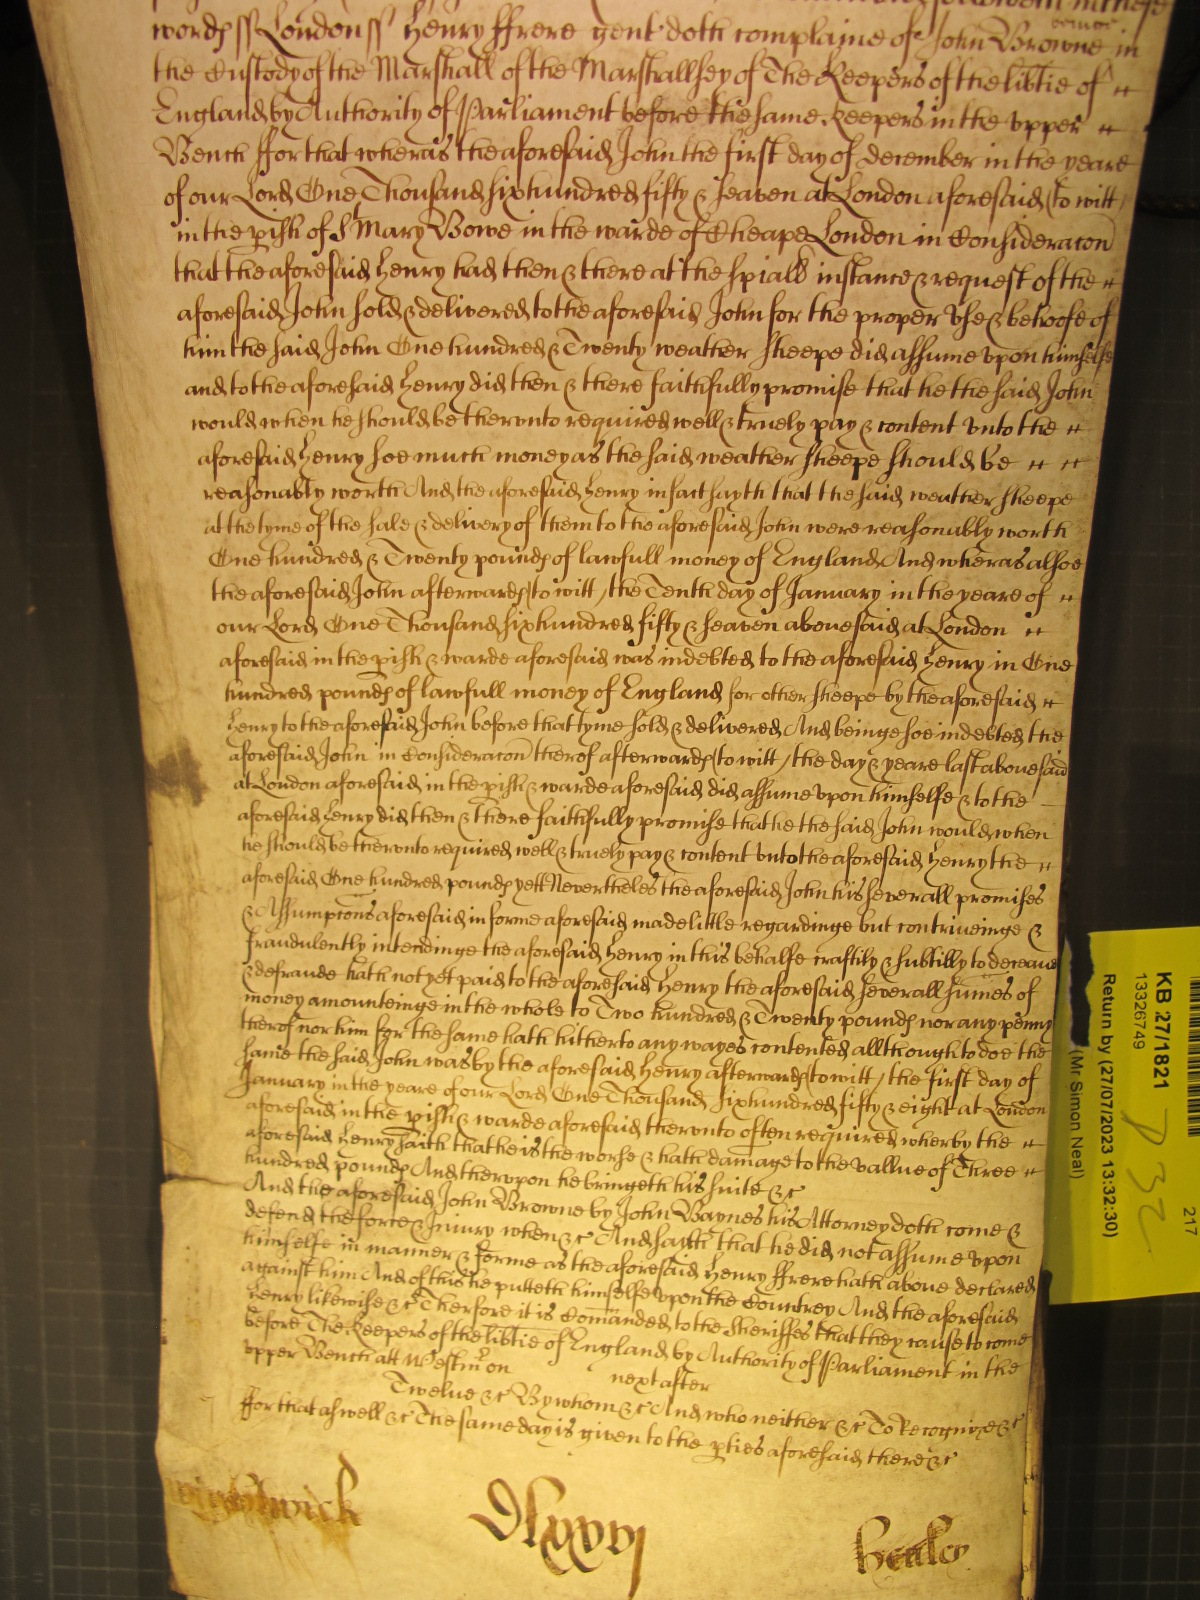 words ss London ss Henry ffrere gent doth complaine of John Browne in
the Custody of the Marshall of the Marshallsey of The Keepers of the lib̄tie of
England by Authority of Parliament before the same keepers in the vpper
Bench ffor that wheras the aforesaid John the first day of december in the yeare
of our Lord One Thousand sixhundred fifty & seaven at London aforesaid (to witt)
in the pish of St Mary Bowe in the warde of Cheape London in Consideracon
that the aforesaid Henry had then & there at the spiall instance & request of the
aforesaid John sold & delivered to the aforesaid John for the proper vse & behoofe of
him the said John One hundred & Twenty weather sheepe did assume vpon himselfe
and to the aforesaid Henry did then & there faithfully promise that he the said John
would when he should be thervnto required well & truely pay & content vnto the
aforesaid Henry soe much money as the said weather sheepe should be
reasonably worth And the aforesaid Henry in fact sayth that the said weather sheepe
at the tyme of the sale & delivery of them to the aforesaid John were reasonably worth
One hundred & Twenty pounds of lawfull money of England And wheras alsoe
the aforesaid John afterwards (to witt) the Tenth day of January in the yeare of
our Lord One Thousand sixhundred fifty & seaven abouesaid at London
aforesaid in the pish & warde aforesaid was indebted to the aforesaid Henry in One
hundred pounds of lawfull money of England for other sheepe by the aforesaid
Henry to the aforesaid John before that tyme sold & delivered And beinge soe indebted the
aforesaid John in Consideracon therof afterwards (to witt) the day & yeare last abouesaid
at London aforesaid in the pish & warde aforesaid did assume vpon himselfe & to the
aforesaid Henry did then & there faithfully promise that he the said John would when
he should be thervnto required well & truely pay & content vnto the aforesaid Henry the
aforesaid One hundred pounds yett Nevertheles the aforesaid John his severall promises
& Assumpcons aforesaid in forme aforesaid made little regardinge but contriveinge &
fraudulently intendinge the aforesaid Henry in this behalfe craftily & subtilly to deceaue
& defraude hath not yet paid to the aforesaid Henry the aforesaid severall sumes of
money amounteinge in the whole to Two hundred & Twenty pounds nor any penny
therof nor him for the same hath hitherto any wayes contented allthough to doe the
same the said John was by the aforesaid Henry afterwards (to witt) the first day of
January in the yeare of our Lord One Thousand sixhundred fifty & eight at London
aforesaid in the pish & warde aforesaid thervnto often required wherby the
aforesaid Henry saith that he is the worse & hath damage to the vallue of Three
hundred pounds And thervpon he bringeth his suite &c
And the aforesaid John Browne by John Baynes his Attorney doth come &
defend the force & Iniury when &c And sayth that he did not assume vpon
himselfe in manner & forme as the aforesaid Henry ffrere hath aboue declared
against him And of this he putteth himselfe vpon the Countrey And the aforesaid
Henry likewise &c Therfore it is Comanded to the Sheriffes that they cause to come
before The keepers of the lib̄tie of England by Authority of Parliament in the
vpper Bench att Westmr on next after
Twelue &c By whom &c And who neither &c To Recognize &c
ffor that aswell &c The same day is given to the pties aforesaid there &c
KB 27/1821
13326749
Return by (27/07/2023 13:32:30)
(Mr Simon Neal)
217